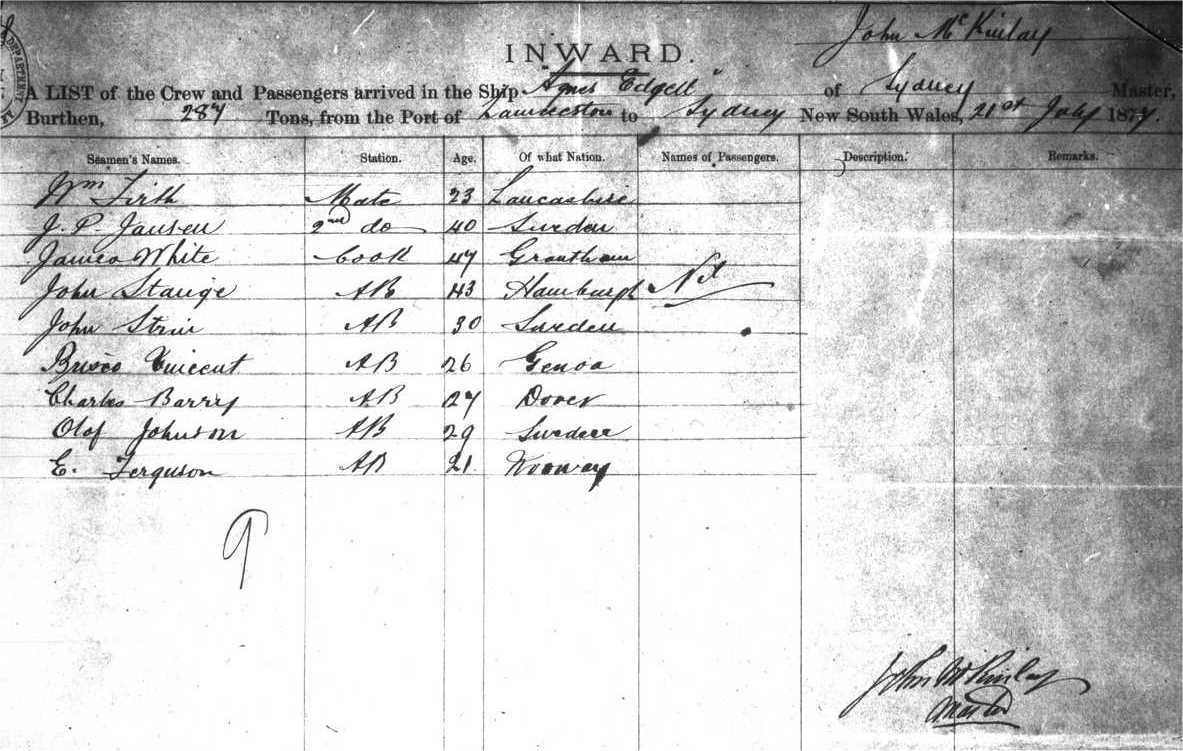 DEPARTMENT
John McKinlay
INWARD.
A LIST of the Crew and Passengers arrived in the Ship "Agnes Edgell" of Sydney Master,
Burthen, 287 Tons, from the Port of Launceston to Sydney New South Wales, 21st July 1877.
Seamen's Names. Station. Age. Of what Nation. Names of Passengers. Description. Remarks.
Wm Firth Mate 23 Lancashire
J. P. Jansen 2nd do 40 Sweden
James White Cook 47 Grantham
John Stange AB 43 Hamburgh Nil
John AB 30 Sweden
Vincent AB 26 Genoa
Charles Barry AB 27 Dover
Olof Johnson AB 29 Sweden
E. Ferguson AB 21 Norway
9
John McKinlay
Master